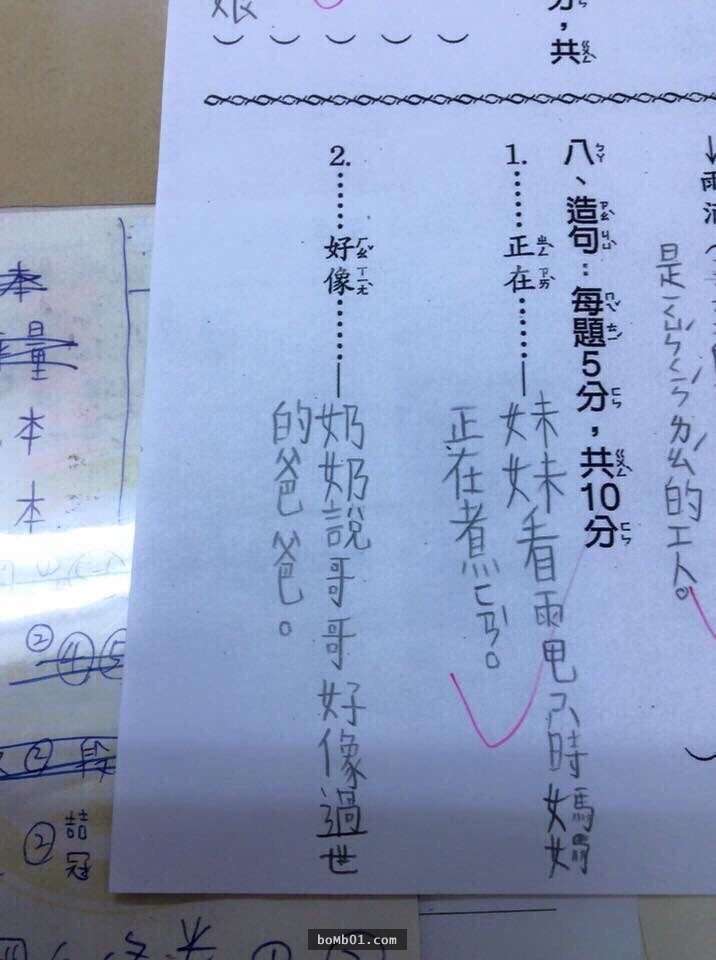 的工人。
分，共
八、造句：每題5分，共10分
1.……正在……—妹妹看電ㄕˋ時媽媽
正在煮ㄈㄢˋ。
2.……好像……—奶奶說哥哥好像過世
的爸爸。
本
量
本
本
②④⑤
②段
②喆冠
boMb01.com